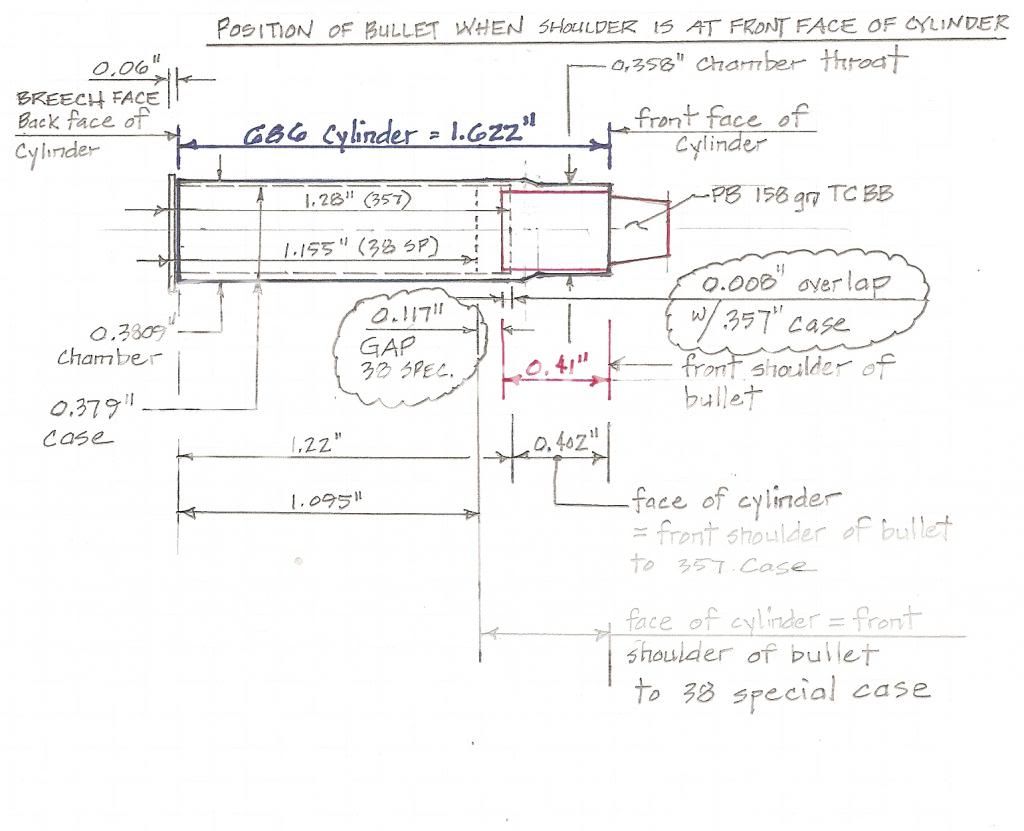 POSITION OF BULLET WHEN SHOULDER IS AT FRONT FACE OF CYLINDER
0.06"
BREECH FACE
Back face of
Cylinder
686 Cylinder = 1.622"
0.358" chamber throat
front face of
Cylinder
1.28" (357)
PB 158 grn TC BB
1.155" (38 SP)
0.008" overlap
w/.357" case
0.117"
GAP
38 SPEC.
0.3809"
chamber
0.41"
front shoulder of
bullet
0.379"
case
1.22"
0.402"
1.095"
face of cylinder
= front shoulder of bullet
to 357 case
face of cylinder = front
shoulder of bullet
to 38 special case